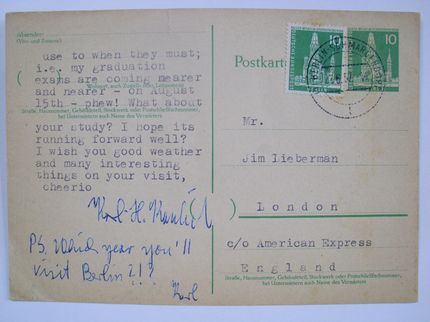 Absender:
(Vor- und Zuname)
use to when they must;
i.e. my graduation
exams are coming nearer
Wohnort, auch Zustell- oder Leitpostamt
and nearer - on August
15th - phew! What about
Straße, Hausnummer, Gebäudeteil, Stockwerk oder Postschließfachnummer,
bei Untermietern auch Name des Vermieters
your study? I hope its
running forward well?
I wish you good weather
and many interesting
things on your visit,
cheerio
Karl-H.
PS. Which year you'll
visit Berlin?!?
Karl
Postkarte
10
Mr.
Jim Lieberman
London
c/o American Express
England
Straße, Hausnummer, Gebäudeteil, Stockwerk oder Postschließfachnummer,
bei Untermietern auch Name des Vermieters